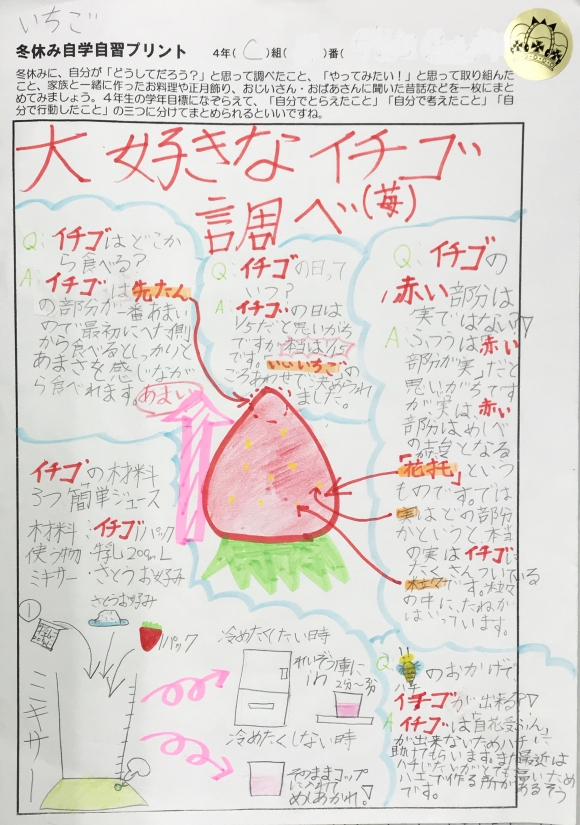 いちご
冬休み自学自習プリント　4年( C )組(　)番(
冬休みに、自分が「どうしてだろう？」と思って調べたこと、「やってみたい！」と思って取り組んだ
こと、家族と一緒に作ったお料理や正月飾り、おじいさん・おばあさんに聞いた昔話などを一枚にまと
めてみましょう。4年生の学年目標になぞらえて、「自分でとらえたこと」「自分で考えたこと」「自
分で行動したこと」の三つに分けてまとめられるといいですね。
大好きなイチゴ
調べ(苺)
Q:イチゴはどこか
ら食べる？
A イチゴは先たん
の部分が一番あまい
ので最初にへた側
から食べるとしっかりと
あまさを感じなが
ら食べれます。
あまい
Q:イチゴの日って
いつ？
A イチゴの日は
1/5だと思いがち
ですが本当は1/15
です。いいいちごの
ごろあわせで
ました。
Q:イチゴの
赤い部分は
実ではない？
A:ふつうは赤い
部分が実だと
思いがちです
が実は赤い
部分はめしべ
となる
「花托」という
ものです。では
実はどの部分
かというと本当
の実はイチゴに
たくさんついている
粒々です。粒々
の中に、たねが
はいっています。
イチゴの材料
3つ簡単ジュース
材料・イチゴ1パック
使う物・牛乳200mL
ミキサー・さとうお好み
①
さとうお好み
1パック
ミキサー
冷めたくしたい時
れいぞう庫に
in
2分〜3分
冷めたくしない時
そのままコップ
に入れて
めしあがれ！
Q:ハチのおかげで、
イチゴが出来る？
A イチゴは自花受ふん
が出来ないためハチに
助けてもらいます。また最近は
ハエで作る所があるそう
です。